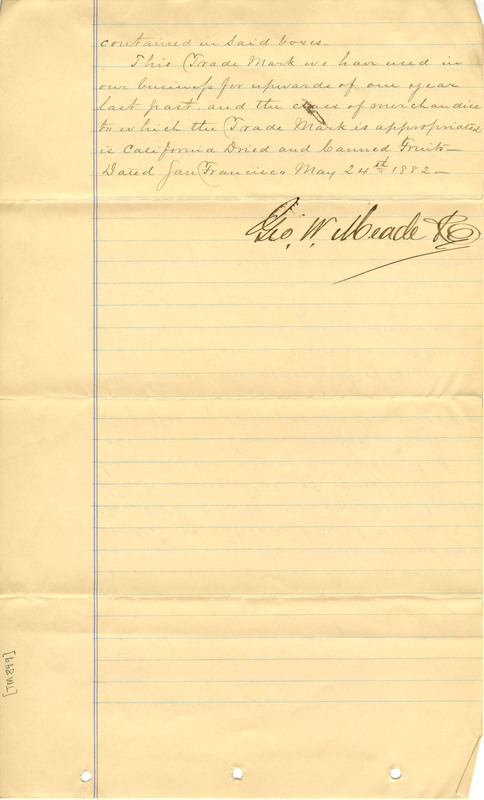 contained in said boxes.
This Trade Mark we have used in
our business for upwards of one year
last past, and the class of merchandise
to which the Trade Mark is appropriated
is California Dried and Canned Fruits—
Dated San Francisco May 24th 1882—
Geo. W. Meade & Co
[TM 849]